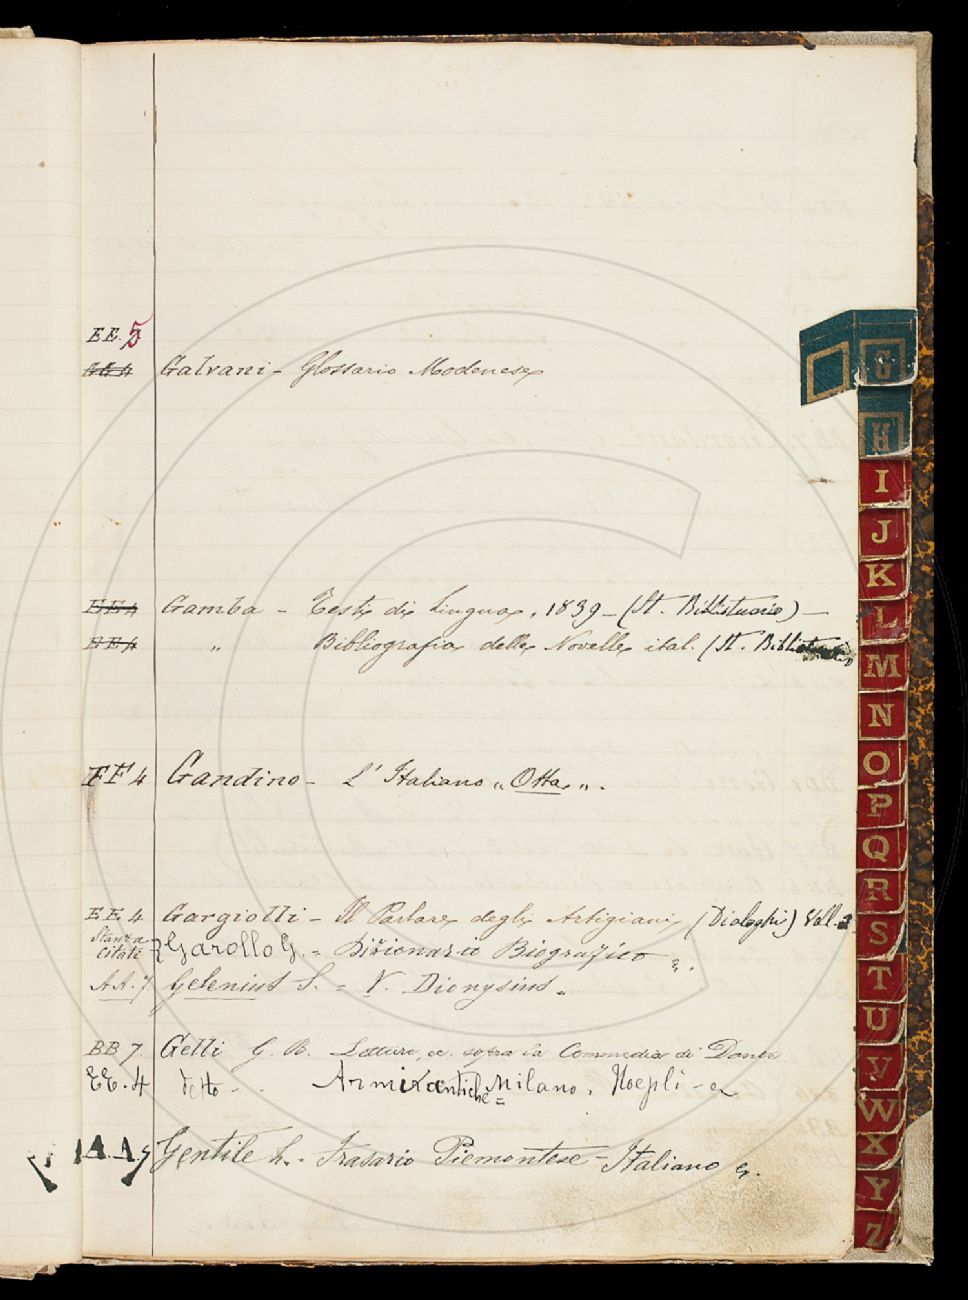 EE. 5
EE 4 Galvani - Glossario Modenese
EE 4 Gamba - Testi di Lingua, 1839 - (St. Bibl
EE 4 " Bibliografia delle Novelle ital. (St. Bibl
EE 4 Gandino - L' Italiano
EE 4 Gargiolli - Il Parlare degli Artigiani (Dialoghi) Voll. 2
Stanza
citate Garollo G. = Dizionario Biografico
AA. 7 Gelenius S. = V. Dionysius
BB 7. Gelli G. B. Letture sopra la Commedia di Dante
EE. 4 detto - Milano, Hoepli
AA. Gentile L. - Frasario Piemontese = Italiano
G
H
I
J
K
L
M
N
O
P
Q
R
S
T
U
V
W
X
Y
Z